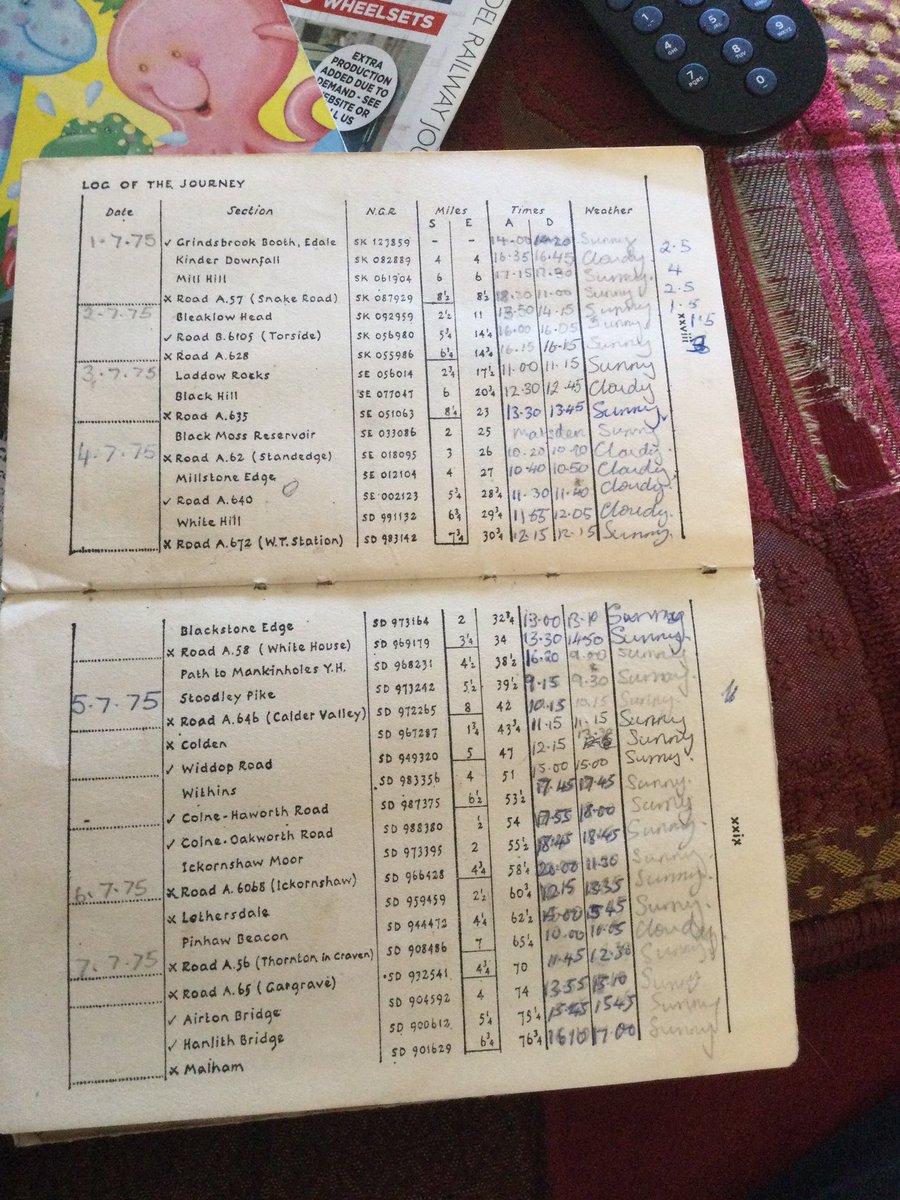 WHEELSETS
EXTRA
PRODUCTION
ADDED DUE TO
DEMAND - SEE
WEBSITE OR
US
DEL RAILWAY JOU
1
4 GHI
5 JKL
7 PQRS
8 TUV
9 WXYZ
0
LOG OF THE JOURNEY
Date Section N.G.R. Miles Times Weather
S E A D
1.7.75 ✓ Grindsbrook Booth, Edale SK 123859 - - 14.00 Sunny
Kinder Downfall SK 082889 4 4 16.35 16.45 Cloudy 2.5
Mill Hill SK 061904 6 6 17.15 17.30 Sunny. 4
x Road A.57 (Snake Road) SK 087929 8½ 8½ 18.30 11.00 Sunny 2.5
2.7.75 Bleaklow Head SK 092959 2½ 11 13.50 14.15 Sunny 1.5
✓ Road B.6105 (Torside) SK 056980 5¾ 14¼ 16.00 16.05 Sunny 1.5
x Road A.628 SK 055986 6¼ 14¾ 16.15 16.15 Sunny
3.7.75 Laddow Rocks SE 056014 2¾ 17½ 11.00 11.15 Sunny
Black Hill SE 077047 6 20¾ 12.30 12.45 Cloudy
x Road A.635 SE 051063 8¼ 23 13.30 13.45 Sunny
Black Moss Reservoir SE 033086 2 25 Marsden Sunny
4.7.75 x Road A.62 (Standedge) SE 018095 3 26 10.20 10.20 Cloudy.
Millstone Edge SE 012104 4 27 10.40 10.50 Cloudy
✓ Road A.640 SE 002123 5¾ 28¾ 11.30 11.40 Cloudy
White Hill SD 991132 6¾ 29¾ 11.55 12.05 Cloudy.
x Road A.672 (W.T. Station) SD 983142 7¾ 30¾ 12.15 12.15 Sunny.
xxviii
Blackstone Edge SD 973164 2 32¾ 13.00 13.10 Sunny
x Road A.58 (White House) SD 969179 3¼ 34 13.30 14.50 Sunny.
Path to Mankinholes Y.H. SD 968231 4½ 38½ 16.20 9.00 Sunny
5.7.75 Stoodley Pike SD 973242 5½ 39½ 9.15 9.30 Sunny.
x Road A.646 (Calder Valley) SD 972265 8 42 10.15 10.15 Sunny.
x Colden SD 967287 1¾ 43¾ 11.15 11.15 Sunny
✓ Widdop Road SD 949320 5 47 12.15 Sunny
Withins SD 983356 4 51 15.00 15.00 Sunny.
✓ Colne-Haworth Road SD 987375 6½ 53½ 17.45 17.45 Sunny.
✓ Colne-Oakworth Road SD 988380 ½ 54 17.55 18.00 Sunny.
Ickornshaw Moor SD 973395 2 55½ 18.45 18.45 Sunny.
6.7.75 x Road A.6068 (Ickornshaw) SD 966428 4¾ 58¼ 20.00 11.30 Sunny
x Lothersdale SD 959459 2½ 60¾ 12.15 13.35 Sunny.
Pinhaw Beacon SD 944472 4¼ 62½ 15.00 15.45 Sunny.
7.7.75 x Road A.56 (Thornton in Craven) SD 908486 7 65¼ 10.00 10.05 Cloudy
x Road A.65 (Gargrave) SD 932541 4¾ 70 11.45 12.30 Sunny
✓ Airton Bridge SD 904592 4 74 13.55 15.10 Sunny
✓ Hanlith Bridge SD 900612 5¼ 75¼ 15.45 15.45 Sunny
x Malham SD 901629 6¾ 76¾ 16.10 17.00 Sunny
xxix